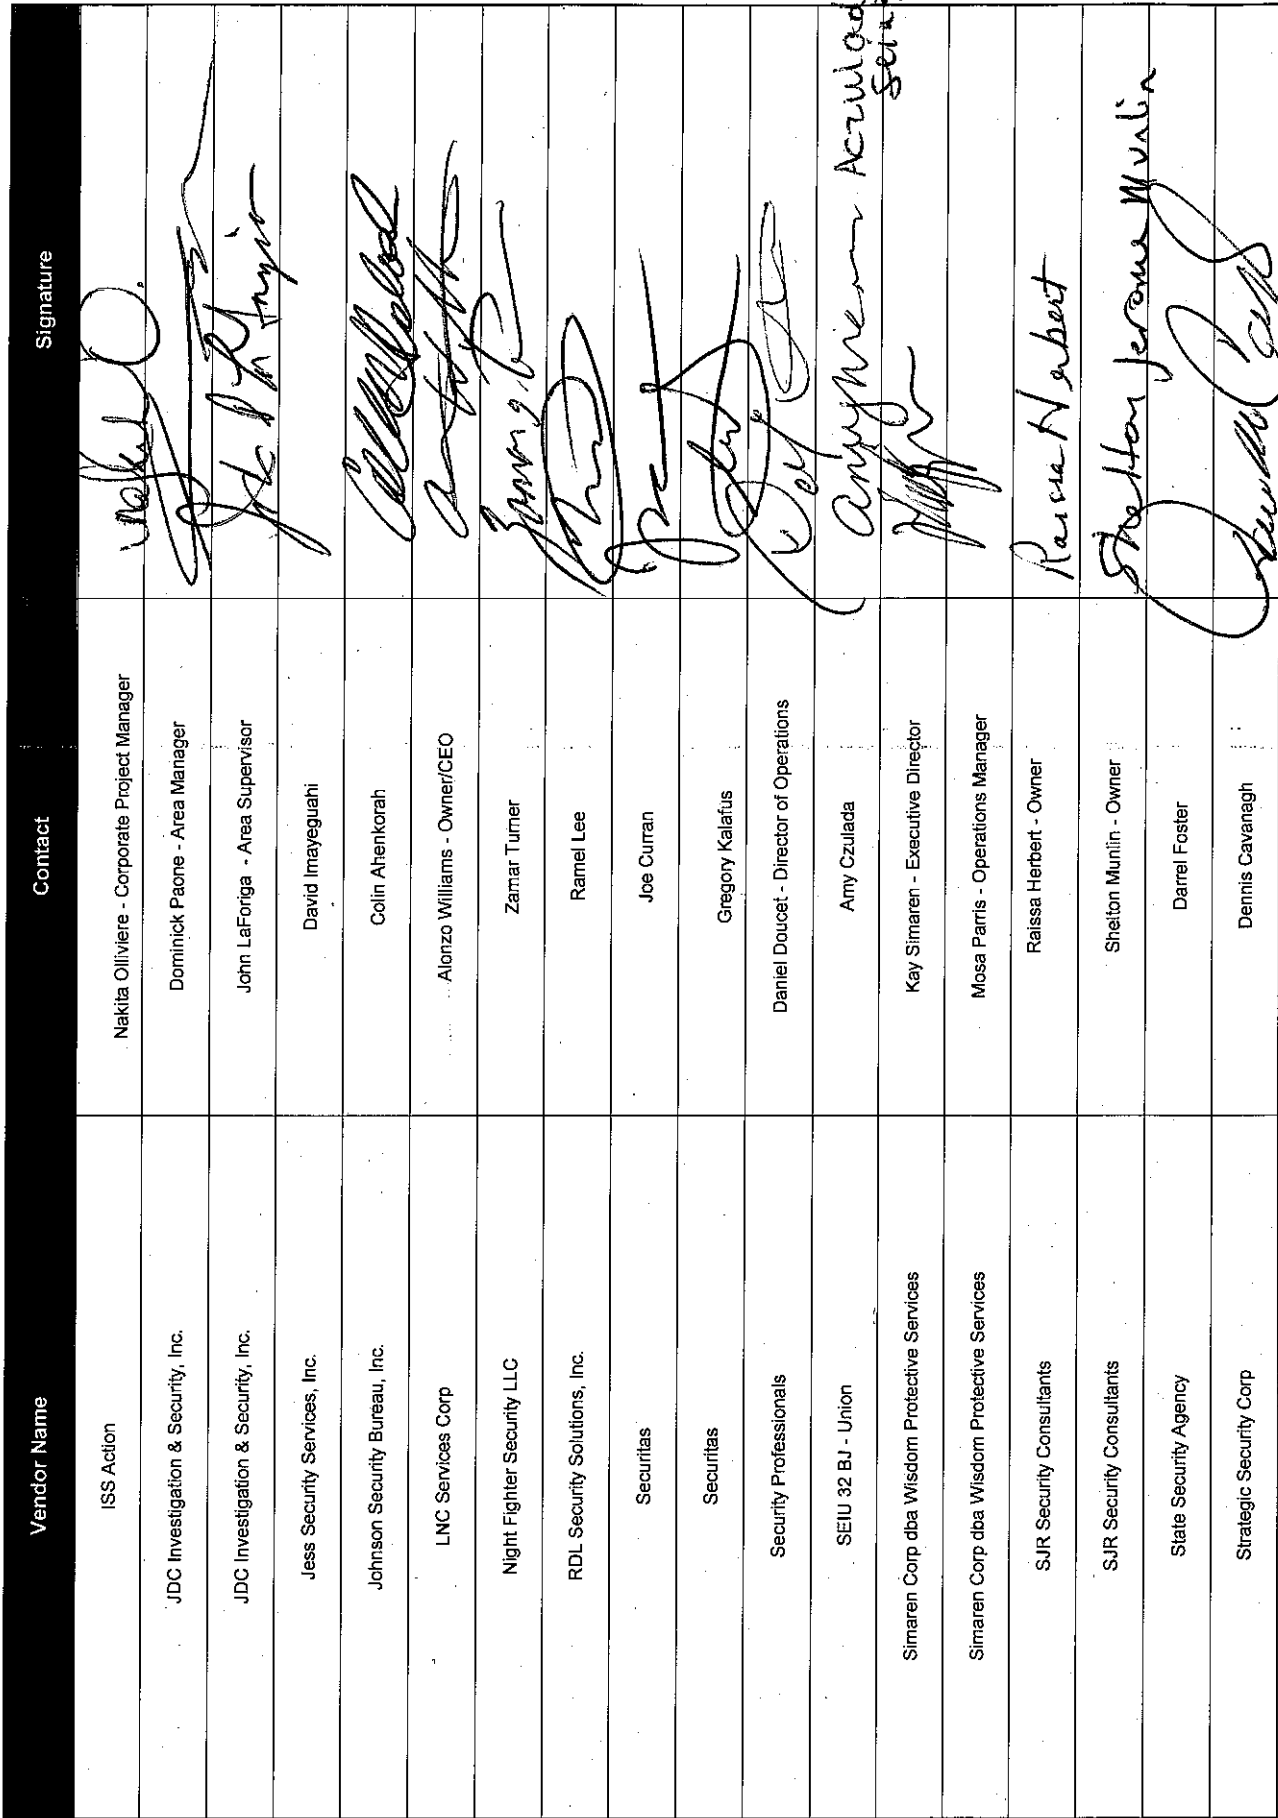 Vendor Name Contact Signature
ISS Action Nakita Olliviere - Corporate Project Manager
JDC Investigation & Security, Inc. Dominick Paone - Area Manager
JDC Investigation & Security, Inc. John LaForiga - Area Supervisor
Jess Security Services, Inc. David Imayeguahi
Johnson Security Bureau, Inc. Colin Ahenkorah
LNC Services Corp Alonzo Williams - Owner/CEO
Night Fighter Security LLC Zamar Turner
RDL Security Solutions, Inc. Ramel Lee
Securitas Joe Curran
Securitas Gregory Kalafus
Security Professionals Daniel Doucet - Director of Operations
SEIU 32 BJ - Union Amy Czulada
Simaren Corp dba Wisdom Protective Services Kay Simaren - Executive Director
Simaren Corp dba Wisdom Protective Services Mosa Parris - Operations Manager
SJR Security Consultants Raissa Herbert - Owner Raissa Herbert
SJR Security Consultants Shelton Munlin - Owner Shelton Jerome Munlin
State Security Agency Darrel Foster
Strategic Security Corp Dennis Cavanagh